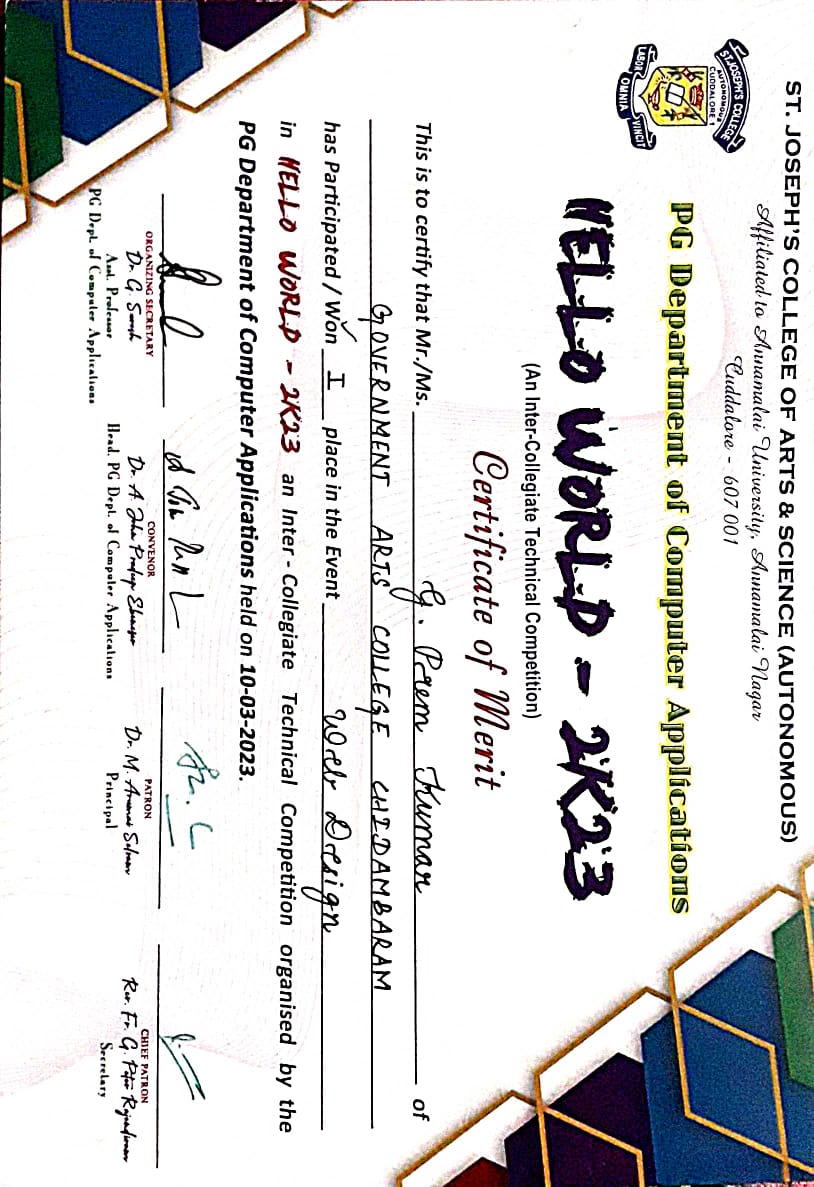 ST. JOSEPH'S COLLEGE OF ARTS & SCIENCE (AUTONOMOUS)
Affiliated to Annamalai University, Annamalai Nagar
Cuddalore - 607 001
ST. JOSEPH'S COLLEGE
AUTONOMOUS
CUDDALORE-1
LABOR OMNIA VINCIT
PG Department of Computer Applications
HELLO WORLD - 2K23
(An Inter-Collegiate Technical Competition)
Certificate of Merit
This is to certify that Mr./Ms. G. Prem Kumar of
GOVERNMENT ARTS COLLEGE CHIDAMBARAM
has Participated / Won I place in the Event Web Design
in HELLO WORLD - 2K23 an Inter - Collegiate Technical Competition organised by the
PG Department of Computer Applications held on 10-03-2023.
ORGANIZING SECRETARY
Dr. G. Suresh
Asst. Professor
PG Dept. of Computer Applications
CONVENOR
Dr. A. John Pradeep Ebenezer
Head, PG Dept. of Computer Applications
PATRON
Dr. M. Arumai Selvam
Principal
CHIEF PATRON
Rev. Fr. G. Peter Rajendiram
Secretary